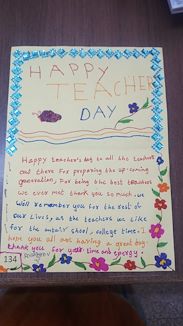 HAPPY
TEACHER
DAY
Happy teacher's day to all the teachers
out there for preparing the up-coming
generation, For being the best teachers
we ever met thank you so much. we
well remember you for the rest of
our lives, as the teachers we like
for the entair shool, college time. I
hope you all are having a great day.
thank you for your time and energy.
134